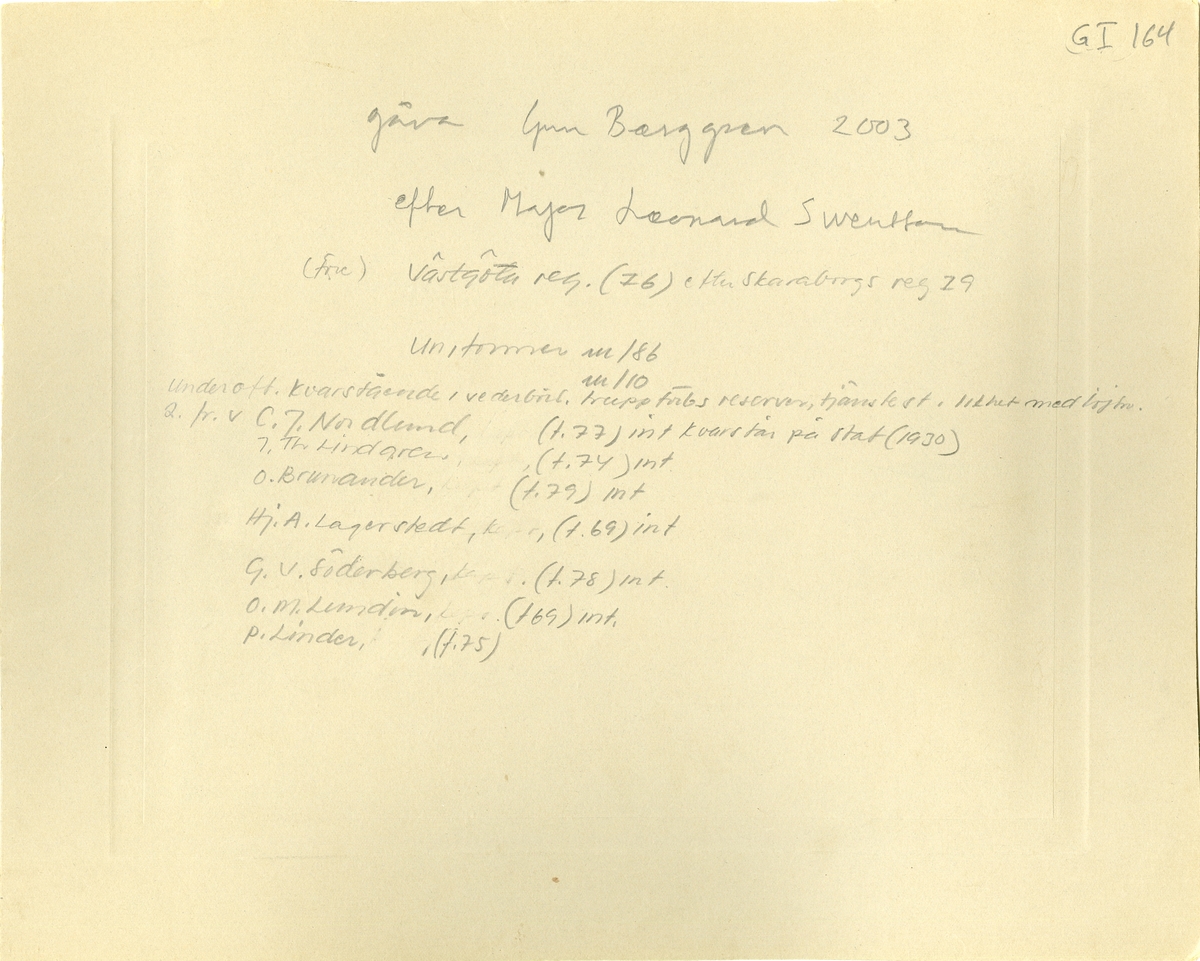 GI 164
gåva Gun Bærggren 2003
efter Major Leonard Swensson
Västgöta reg. (I6) efter Skaraborgs reg I9
Uniformer m/86
m/10
Underoff. kvarstående i vederbörl. truppförbs reserver, tjänst. i likhet med löjtn.
2. fr. v C. J. Nordlund, (f.77) int kvarstår på stat (1930)
J. Th Lindgren, (f.74) int
O. Brunander, (f.79) int
Hj. A. Lagerstedt, (f.69) int
G. V. Söderberg, (f.78) int.
O. M. Lundin, (f69) int.
P. Linder, (f.75)